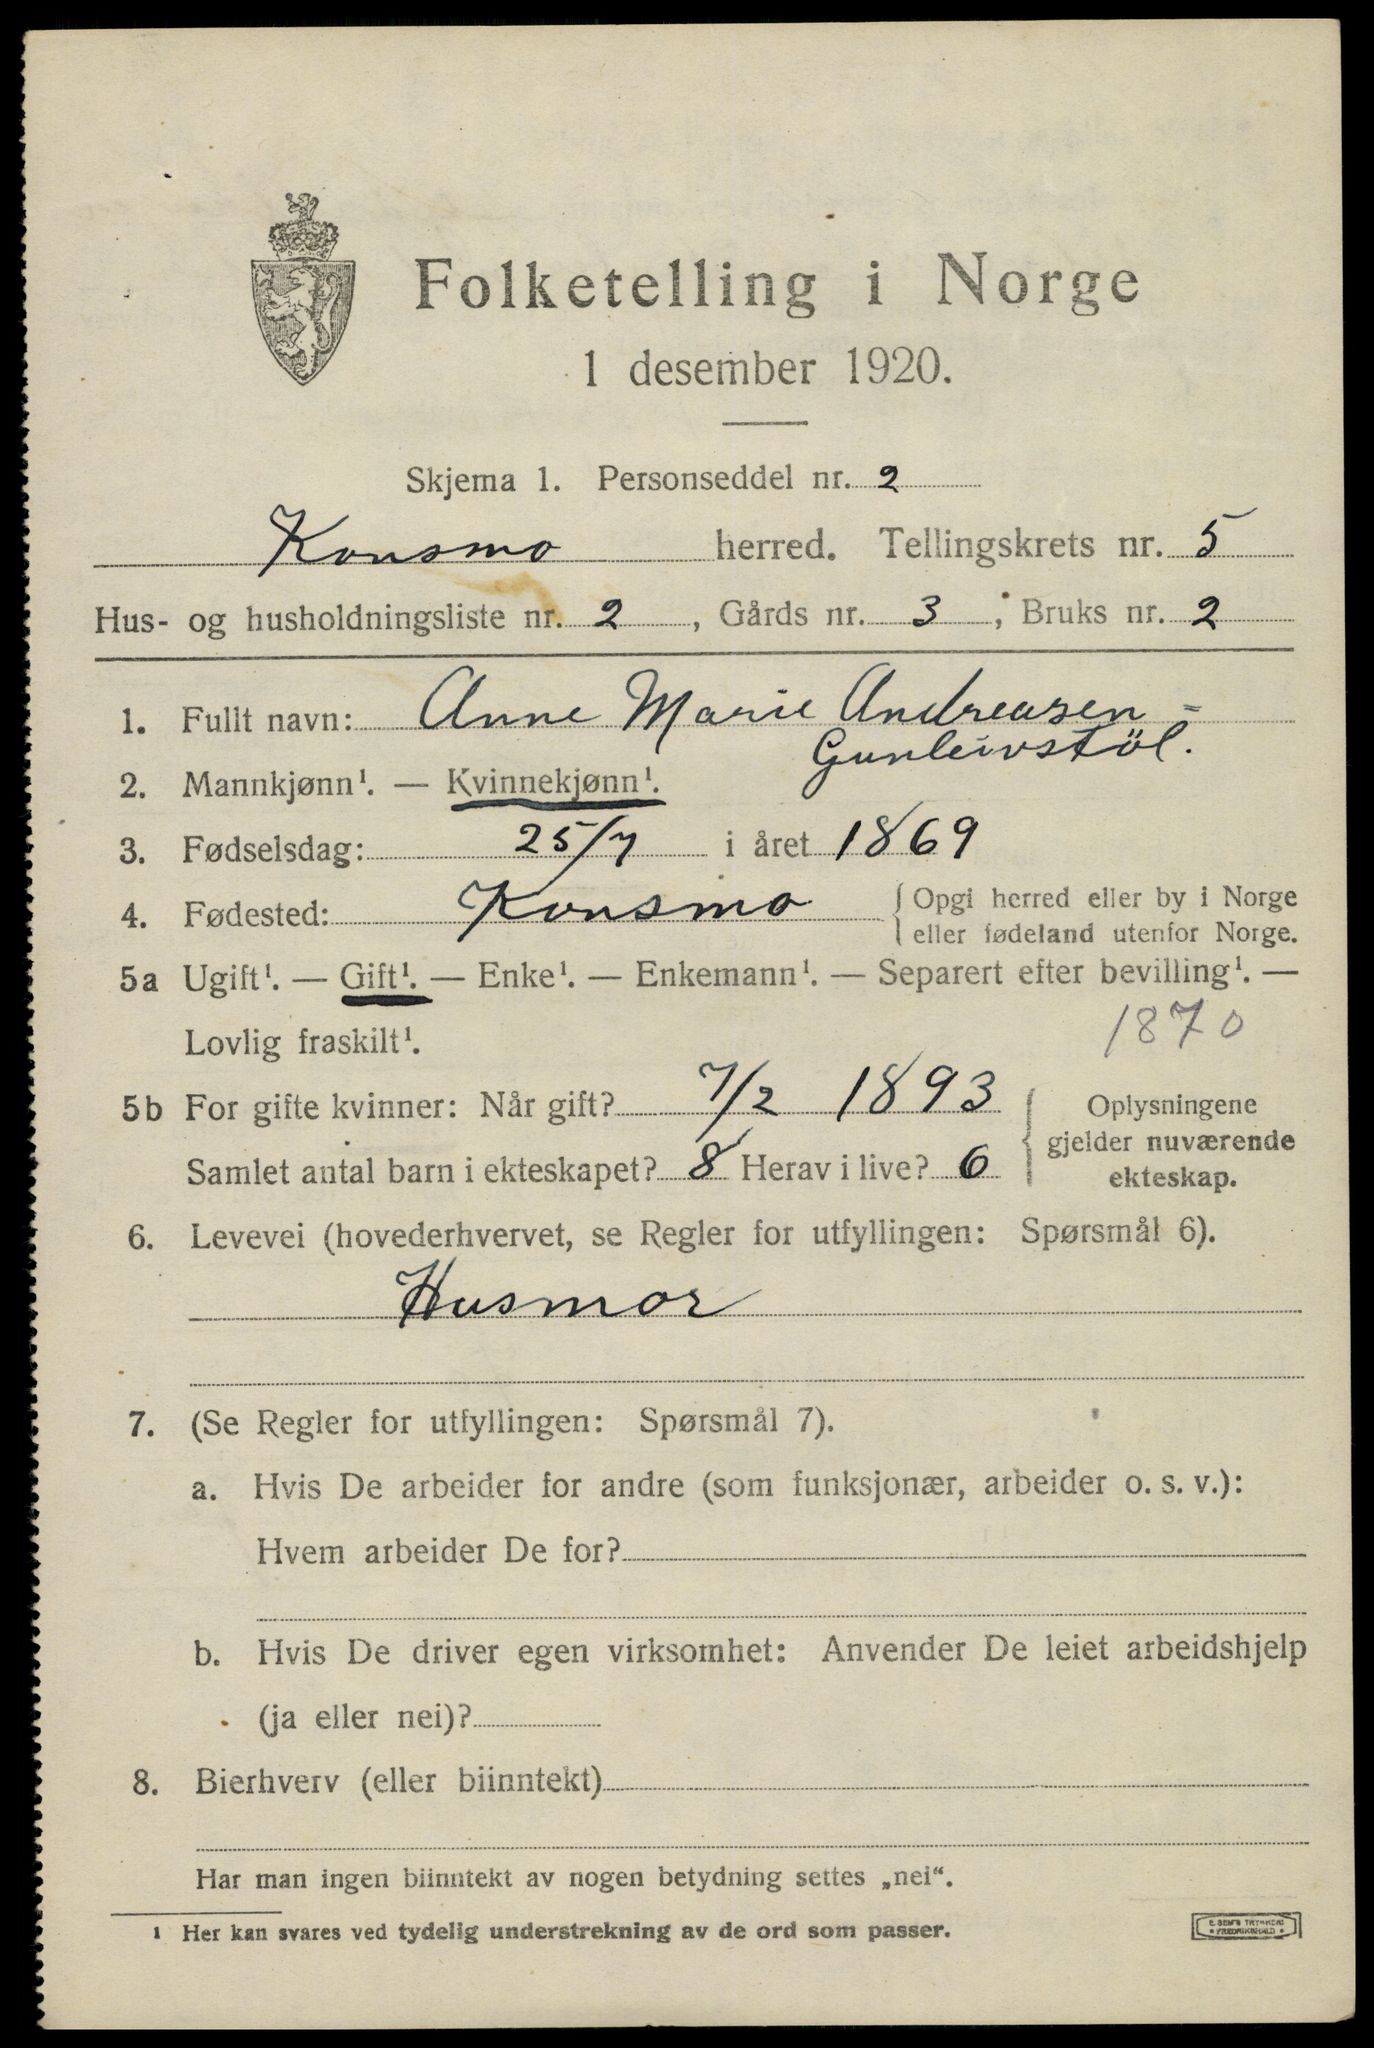 Folketelling i Norge
1 desember 1920.
Skjema 1. Personseddel nr. 2
Konsmo herred. Tellingskrets nr. 5
Hus- og husholdningsliste nr. 2, Gårds nr. 3, Bruks nr. 2
1. Fullt navn: Anne Marie Andreasen -
Gunleivstöl.
2. Mannkjønn¹. — Kvinnekjønn¹.
3. Fødselsdag: 25/7 i året 1869
4. Fødested: Konsmo { Opgi herred eller by i Norge
eller fødeland utenfor Norge.
5a Ugift¹. — Gift¹. — Enke¹. — Enkemann¹. — Separert efter bevilling¹. —
Lovlig fraskilt¹. 1870
5b For gifte kvinner: Når gift? 7/2 1893 { Oplysningene
gjelder nuværende
Samlet antal barn i ekteskapet? 8 Herav i live? 6 ekteskap.
6. Levevei (hovederhvervet, se Regler for utfyllingen: Spørsmål 6).
Husmor
7. (Se Regler for utfyllingen: Spørsmål 7).
a. Hvis De arbeider for andre (som funksjonær, arbeider o. s. v.):
Hvem arbeider De for?
b. Hvis De driver egen virksomhet: Anvender De leiet arbeidshjelp
(ja eller nei)?
8. Bierhverv (eller biinntekt)
Har man ingen biinntekt av nogen betydning settes „nei“.
¹ Her kan svares ved tydelig understrekning av de ord som passer.
E. SEM'S TRYKKERI
FREDRIKSHALD